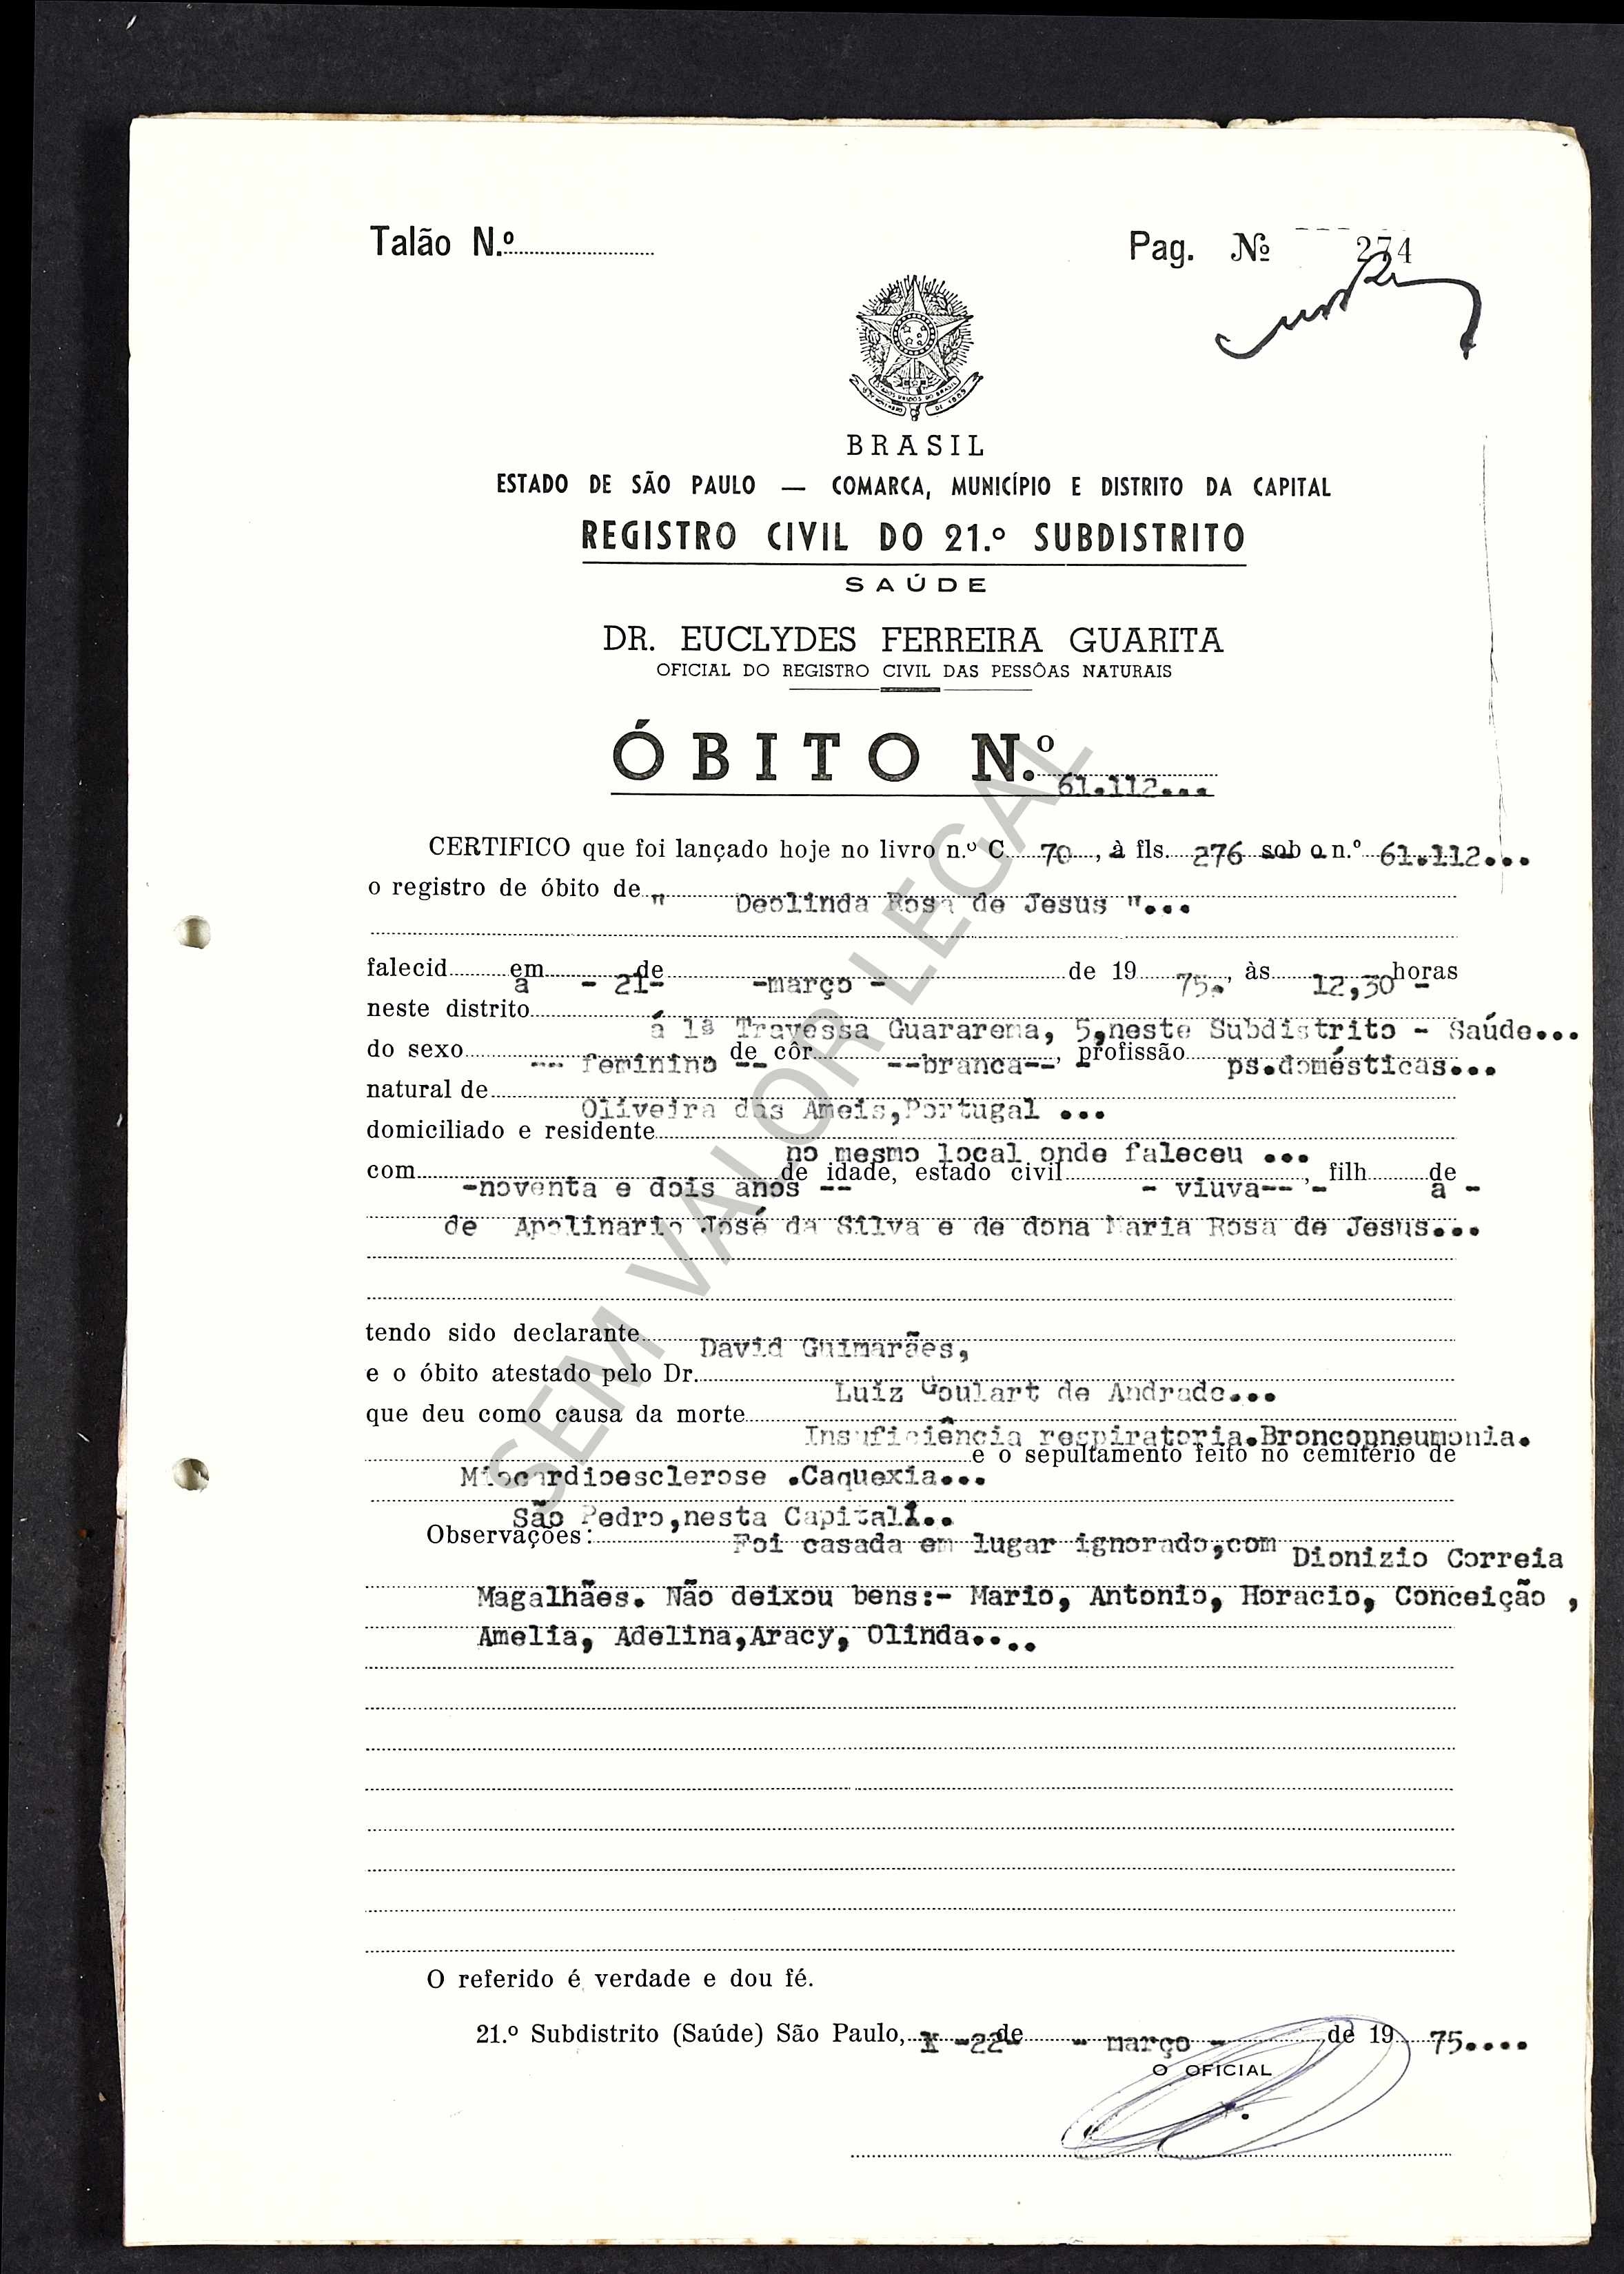 Talão N.º
Pag. Nº 274
BRASIL
ESTADO DE SÃO PAULO — COMARCA, MUNICÍPIO E DISTRITO DA CAPITAL
REGISTRO CIVIL DO 21.º SUBDISTRITO
SAÚDE
DR. EUCLYDES FERREIRA GUARITA
OFICIAL DO REGISTRO CIVIL DAS PESSÔAS NATURAIS
ÓBITO N.º 61.112...
CERTIFICO que foi lançado hoje no livro n.º C 70, à fls. 276 sob o n.º 61.112...
o registro de óbito de " Deolinda Rosa de Jesus "...
falecida em - 21- de -março - de 19 75., às 12,30 - horas
neste distrito á 1ª Travessa Guararema, 5,neste Subdistrito - Saúde...
do sexo -- feminino -- de côr --branca-- , - profissão ps.domésticas...
natural de Oliveira das Ameis,Portugal ...
domiciliado e residente no mesmo local onde faleceu ...
com -noventa e dois anos -- de idade, estado civil - viuva-- -, filha - de
de Apolinario José da Silva e de dona Maria Rosa de Jesus...
tendo sido declarante David Guimarães,
e o óbito atestado pelo Dr. Luiz Goulart de Andrade...
que deu como causa da morte Insuficiência respiratoria.Broncopneumonia.
Miocardioesclerose .Caquexia... e o sepultamento feito no cemitério de
São Pedro,nesta Capital..
Observações: Foi casada em lugar ignorado,com Dionizio Correia
Magalhães. Não deixou bens:- Mario, Antonio, Horacio, Conceição ,
Amelia, Adelina,Aracy, Olinda....
O referido é verdade e dou fé.
21.º Subdistrito (Saúde) São Paulo, X -22- de - março - de 19 75....
O OFICIAL
SEM VALOR LEGAL